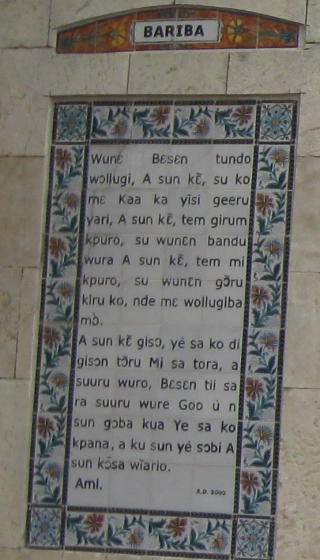 BARIBA
Wunɛ Bɛsɛn tundo
wɔllugi, A sun kɛ̃, su ko
mɛ Kaa ka yĩsi geeru
yari, A sun kɛ̃, tem girum
kpuro, su wunɛn bandu
wura A sun kɛ̃, tem mi
kpuro, su wunɛn gɔ̃ru
kiru ko, nde mɛ wollugiba
mɔ̀.
A sun kɛ̃ gisɔ, yé sa ko di
gisɔn tɔ̃ru Mi sa tora, a
suuru wuro, Bɛsɛn tii sa
ra suuru wure Goo ù n
sun gɔba kua Ye sa ko
kpana, a ku sun yé sɔbi A
sun kɔ̃sa wĩario.
Ami.
A.D. 2000